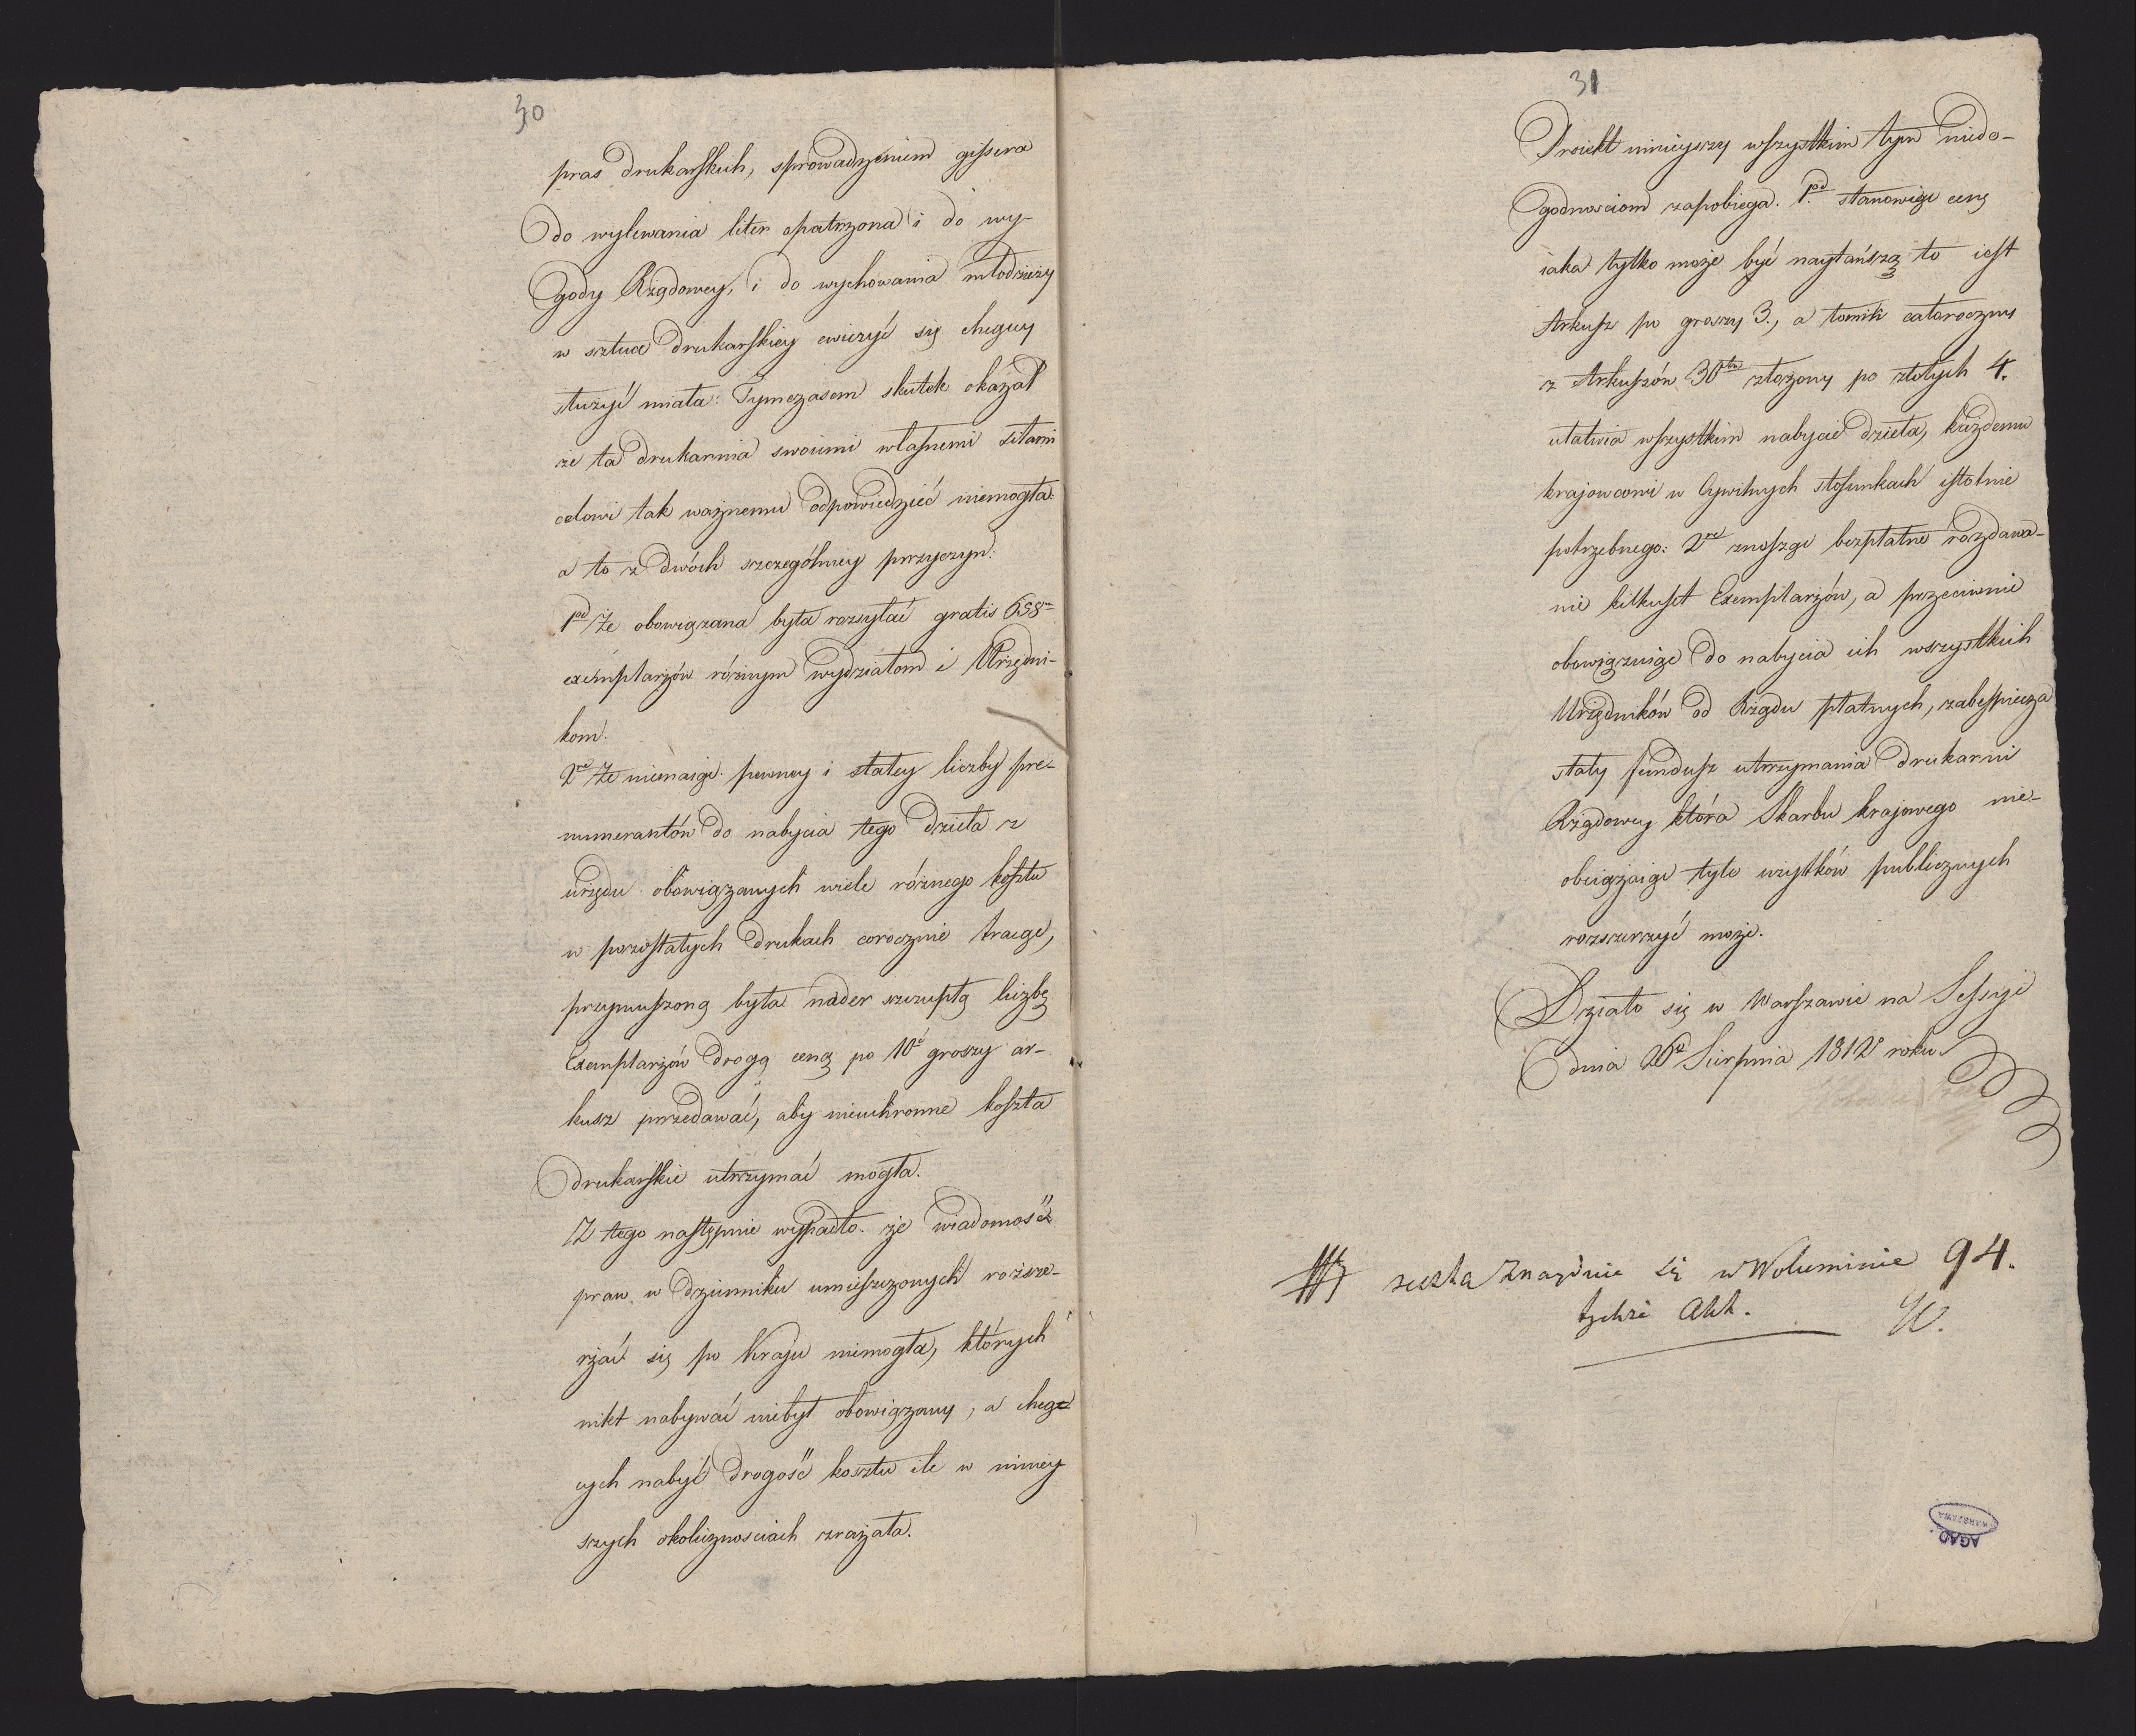 30
pras drukarskich, sprowadzeniem gissera
do wylewania liter opatrzona i do wy-
gody Rządowey, i do wychowania młodzieży
w sztuce drukarskiey cwiczyć się chcącey
służyć miała: Tymczasem skutek okazał
że ta drukarnia swoiemi własnemi siłami
celowi tak ważnemu odpowiedzieć niemogła:
a to z dwóch szczególniey przyczyn:
1od Że obowiązana była rozsyłać gratis 688
exemplarzów różnym wydziałom i Urzędni-
kom.
2re Że niemaiąc pewney i stałey liczby pre-
numerantów do nabycia tego dzieła z
urzędu obowiązanych wiele różnego kosztu
w pozostałych drukach corocznie tracąc,
przymuszoną była nader szczupłą liczbę
Exemplarzów drogą ceną po 10 groszy ar-
kusz przedawać, aby nieuchronne koszta
drukarskie utrzymać mogła.
Z tego następnie wypadło że wiadomość
praw w dzienniku umieszczonych rozsze-
rzać się po Kraju niemogła, których
nikt nabywać niebył obowiązany, a chcą-
cych nabyć drogość kosztu ile w niniey
szych okolicznosciach zrażała.
31
Proiekt ninieyszy wszystkim tym niedo-
godnosciom zapobiega. 1od stanowiąc cenę
iaka tylko może być naytańszą to iest
Arkusz po groszy 3., a tomik całoroczny
z Arkuszów 30stu złożony po złotych 4.
ułatwia wszystkim nabycie dzieła, każdemu
krajowcowi w Cywilnych stosunkach istotnie
potrzebnego: 2re znosząc bezpłatne rozdawa-
nie kilkuset Exemplarzów, a przeciwnie
obowiązuiąc do nabycia ich wszystkich
Urzędników od Rządu płatnych, zabespiecza
stały fundusz utrzymania drukarni
Rządowey która Skarbu krajowego nie-
obciążaiąc tyle użytków publicznych
rozszerzyć może.
Działo się w Warszawie na Sessyi
dnia Sierpnia 1812 roku
reszta znayduie się w Woluminie 94.
tychże Akt.
W.
AGAD
WARSZAWA